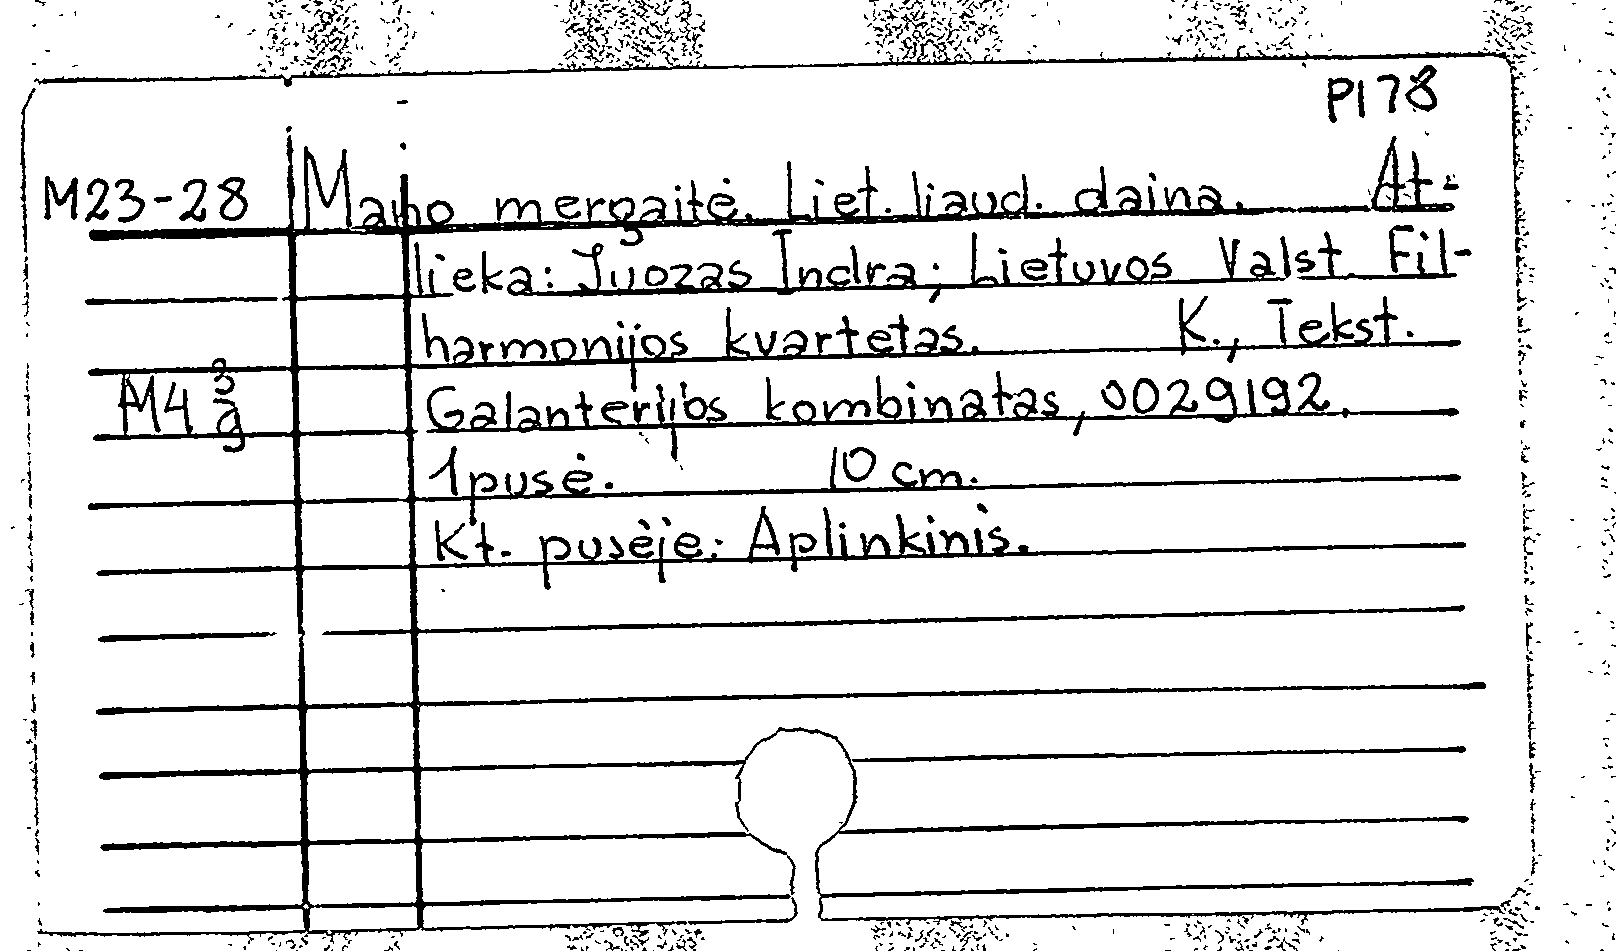 P178
M23-28 Mano mergaitė. Liet. liaud. daina. At-
lieka: Juozas Indra; Lietuvos Valst Fil-
harmonijos kvartetas. K., Tekst.
M4 3/a Galanterijos kombinatas, 0029192.
1 pusė. 10 cm.
Kt. pusėje: Aplinkinis.